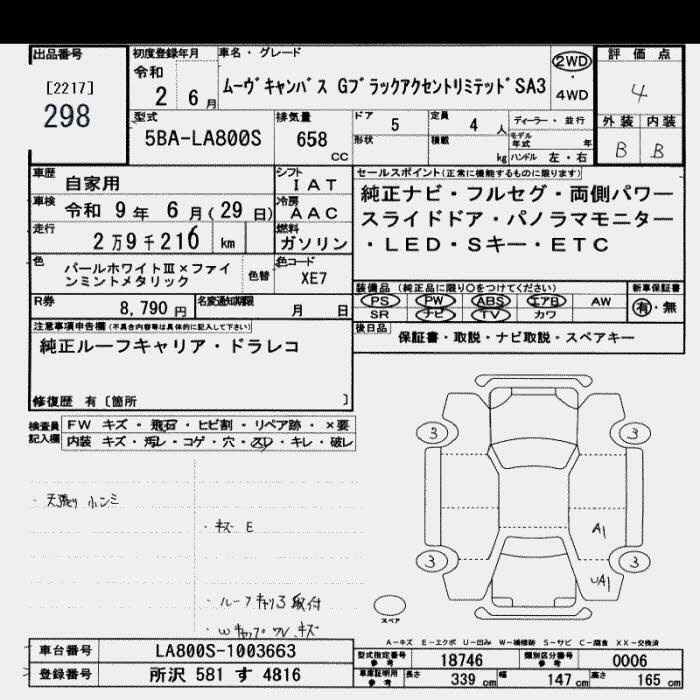 出品番号
[2217]
298
初度登録年月
令和
2 6月
車名・グレード
ムーヴキャンバス GブラックアクセントリミテッドSA3
2WD
・
4WD
評価点
4
外装 内装
B B
型式
5BA-LA800S
排気量
658
cc
ドア 5
定員 4 人
形状
積載 kg
ディーラー・並行
モデル年式 年
ハンドル 左・右
車歴 自家用
シフト
IAT
車検 令和 9年 6月(29日)
冷房
AAC
走行 2万9千210 km
燃料
ガソリン
色 パールホワイトⅢ×ファインミントメタリック
色替
色コード
XE7
R券 8,790円
名変通知期限 月 日
セールスポイント(正常に機能するものに限ります)
純正ナビ・フルセグ・両側パワー
スライドドア・パノラマモニター
・LED・Sキー・ETC
装備品(純正品に限り○をつけてください)
PS PW ABS エアB AW
SR ナビ TV カワ
新車保証書
有・無
後日品 保証書・取説・ナビ取説・スペアキー
注意事項申告欄(不具合内容等は具体的に記入して下さい)
純正ルーフキャリア・ドラレコ
修復歴 有〔箇所 〕
検査員記入欄
FW キズ・飛石・ヒビ割・リペア跡・×要
内装 キズ・汚レ・コゲ・穴・スレ・キレ・破レ
・天張り 小シミ
・キズ E
・ルーフキャリア取付
3 3
3 3
A1
UA1
スペア
A-キズ E-エクボ U-凹み W-補修跡 S-サビ C-腐食 XX-交換済
車台番号 LA800S-1003663
登録番号 所沢 581 す 4816
型式指定番号 参考 18746
類別区分番号 参考 0006
車庫証明用 参考 長さ 339 cm 幅 147 cm 高さ 165 cm